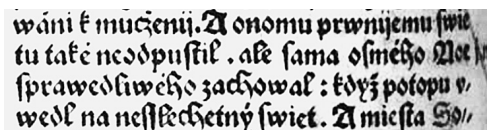 wáni k mučženij. A onomu prwnijemu swie
tu také neodpustil . ale sama osmého Noe
sprawedliwého zachowal : když potopu v⸗
wedl na nesslechetný swiet. A miesta So⸗